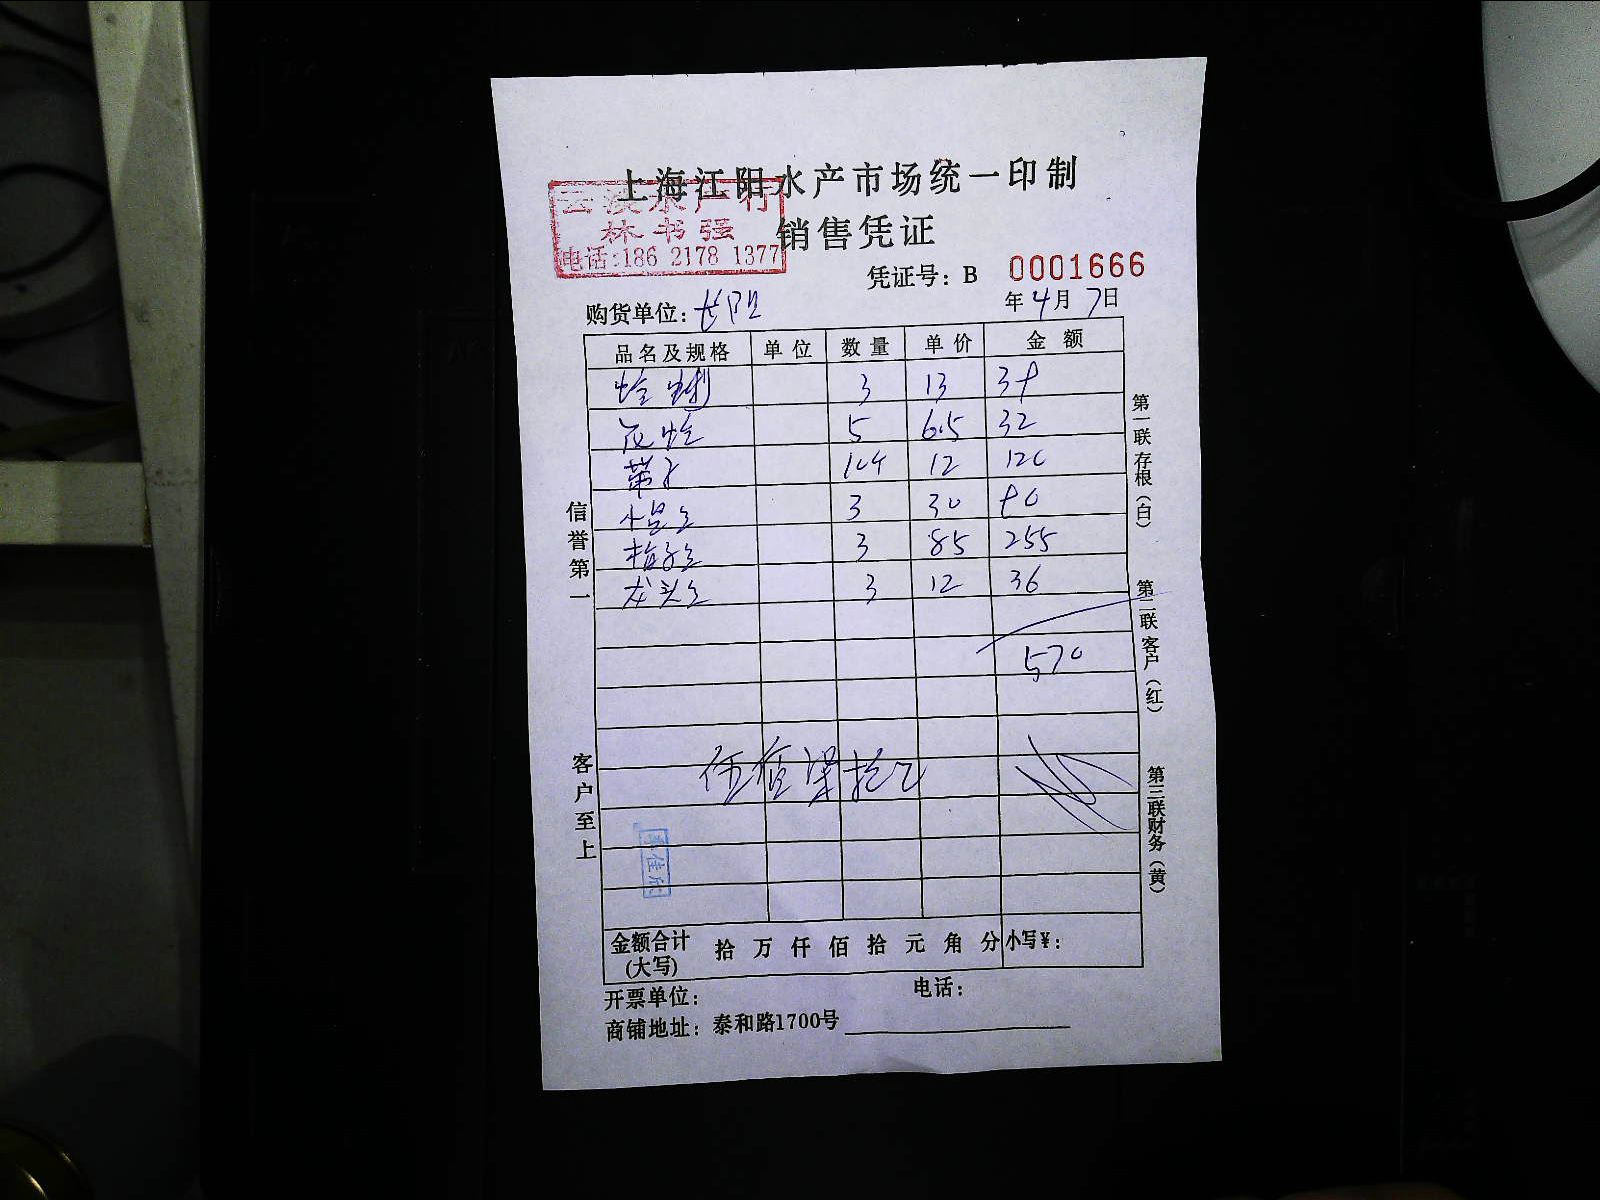 上海江阳水产市场统一印制
云波水产行
林书强
电话:186 2178 1377
销售凭证
凭证号: B 0001666
购货单位: 长阳
年4月7日
品名及规格 单位 数量 单价 金额
3 13 39
花蛤 5 6.5 32
带子 104 12 120
3 30 90
3 85 255
龙头 3 12 36
570
伍佰柒拾元
金额合计(大写) 拾 万 仟 佰 拾 元 角 分 小写¥:
开票单位: 电话:
商铺地址: 泰和路1700号
信誉第一
客户至上
第一联存根(白)
第二联客户(红)
第三联财务(黄)